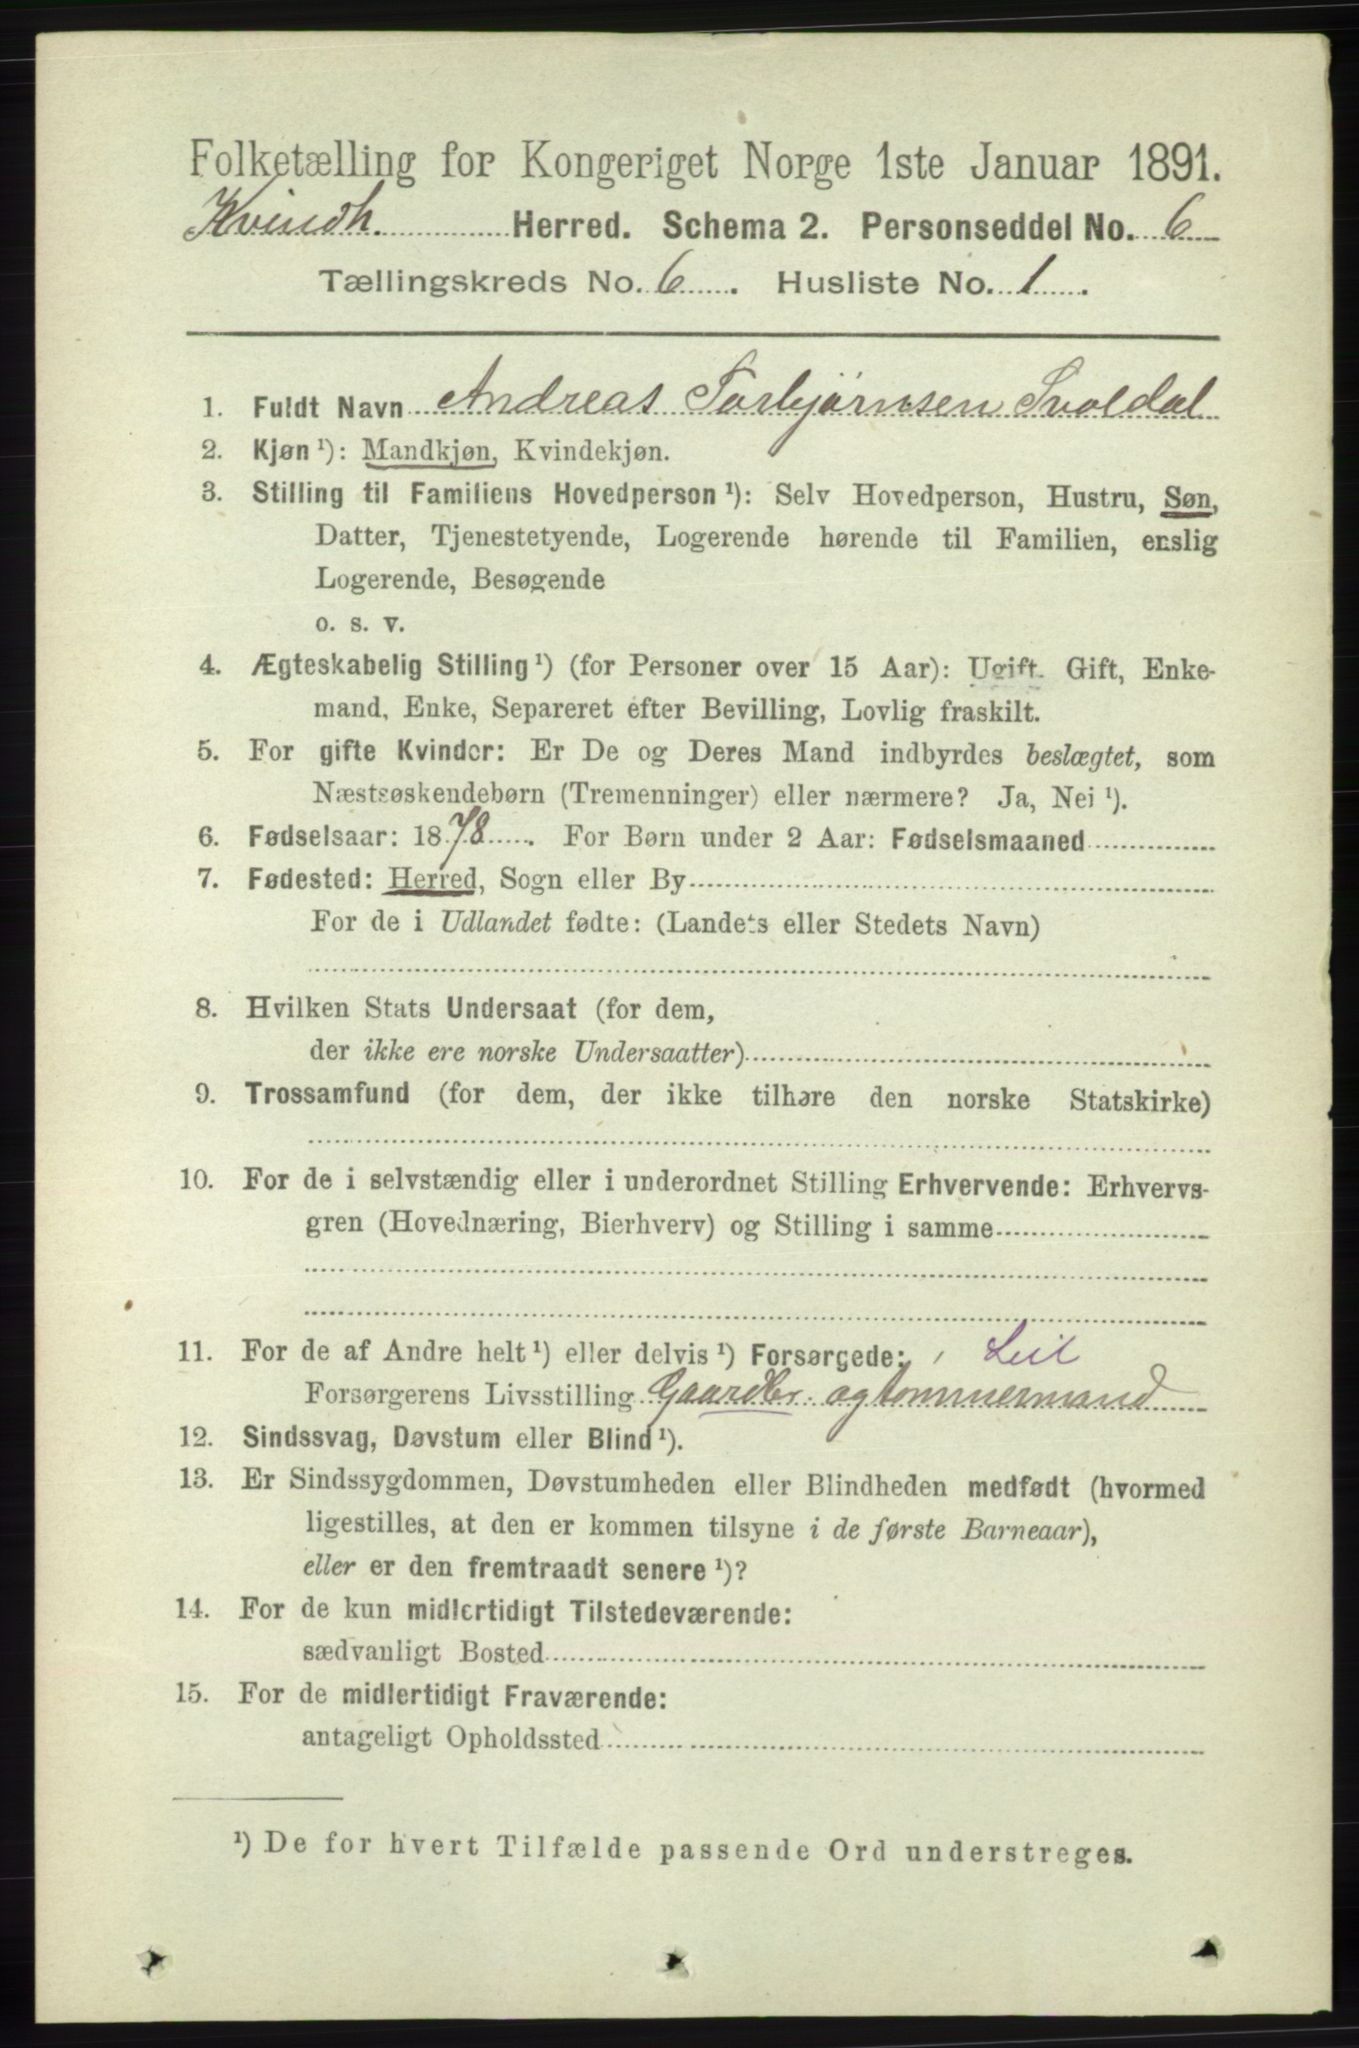 Folketælling for Kongeriget Norge 1ste Januar 1891.
Kvindh. Herred. Schema 2. Personseddel No. 6
Tællingskreds No. 6. Husliste No. 1.
1. Fuldt Navn Andreas Torbjørnsen Svoldal
2. Kjøn ¹): Mandkjøn, Kvindekjøn.
3. Stilling til Familiens Hovedperson ¹): Selv Hovedperson, Hustru, Søn,
Datter, Tjenestetyende, Logerende hørende til Familien, enslig
Logerende, Besøgende
o. s. v.
4. Ægteskabelig Stilling ¹) (for Personer over 15 Aar): Ugift. Gift, Enke-
mand, Enke, Separeret efter Bevilling, Lovlig fraskilt.
5. For gifte Kvinder: Er De og Deres Mand indbyrdes beslægtet, som
Næstsøskendebørn (Tremenninger) eller nærmere? Ja, Nei ¹).
6. Fødselsaar: 1878. For Børn under 2 Aar: Fødselsmaaned
7. Fødested: Herred, Sogn eller By
For de i Udlandet fødte: (Landets eller Stedets Navn)
8. Hvilken Stats Undersaat (for dem,
der ikke ere norske Undersaatter)
9. Trossamfund (for dem, der ikke tilhøre den norske Statskirke)
10. For de i selvstændig eller i underordnet Stilling Erhvervende: Erhvervs-
gren (Hovednæring, Bierhverv) og Stilling i samme
11. For de af Andre helt ¹) eller delvis ¹) Forsørgede: Leil
Forsørgerens Livsstilling Gaardbr. og tømmermand
12. Sindssvag, Døvstum eller Blind ¹).
13. Er Sindssygdommen, Døvstumheden eller Blindheden medfødt (hvormed
ligestilles, at den er kommen tilsyne i de første Barneaar),
eller er den fremtraadt senere ¹)?
14. For de kun midlertidigt Tilstedeværende:
sædvanligt Bosted
15. For de midlertidigt Fraværende:
antageligt Opholdssted
¹) De for hvert Tilfælde passende Ord understreges.